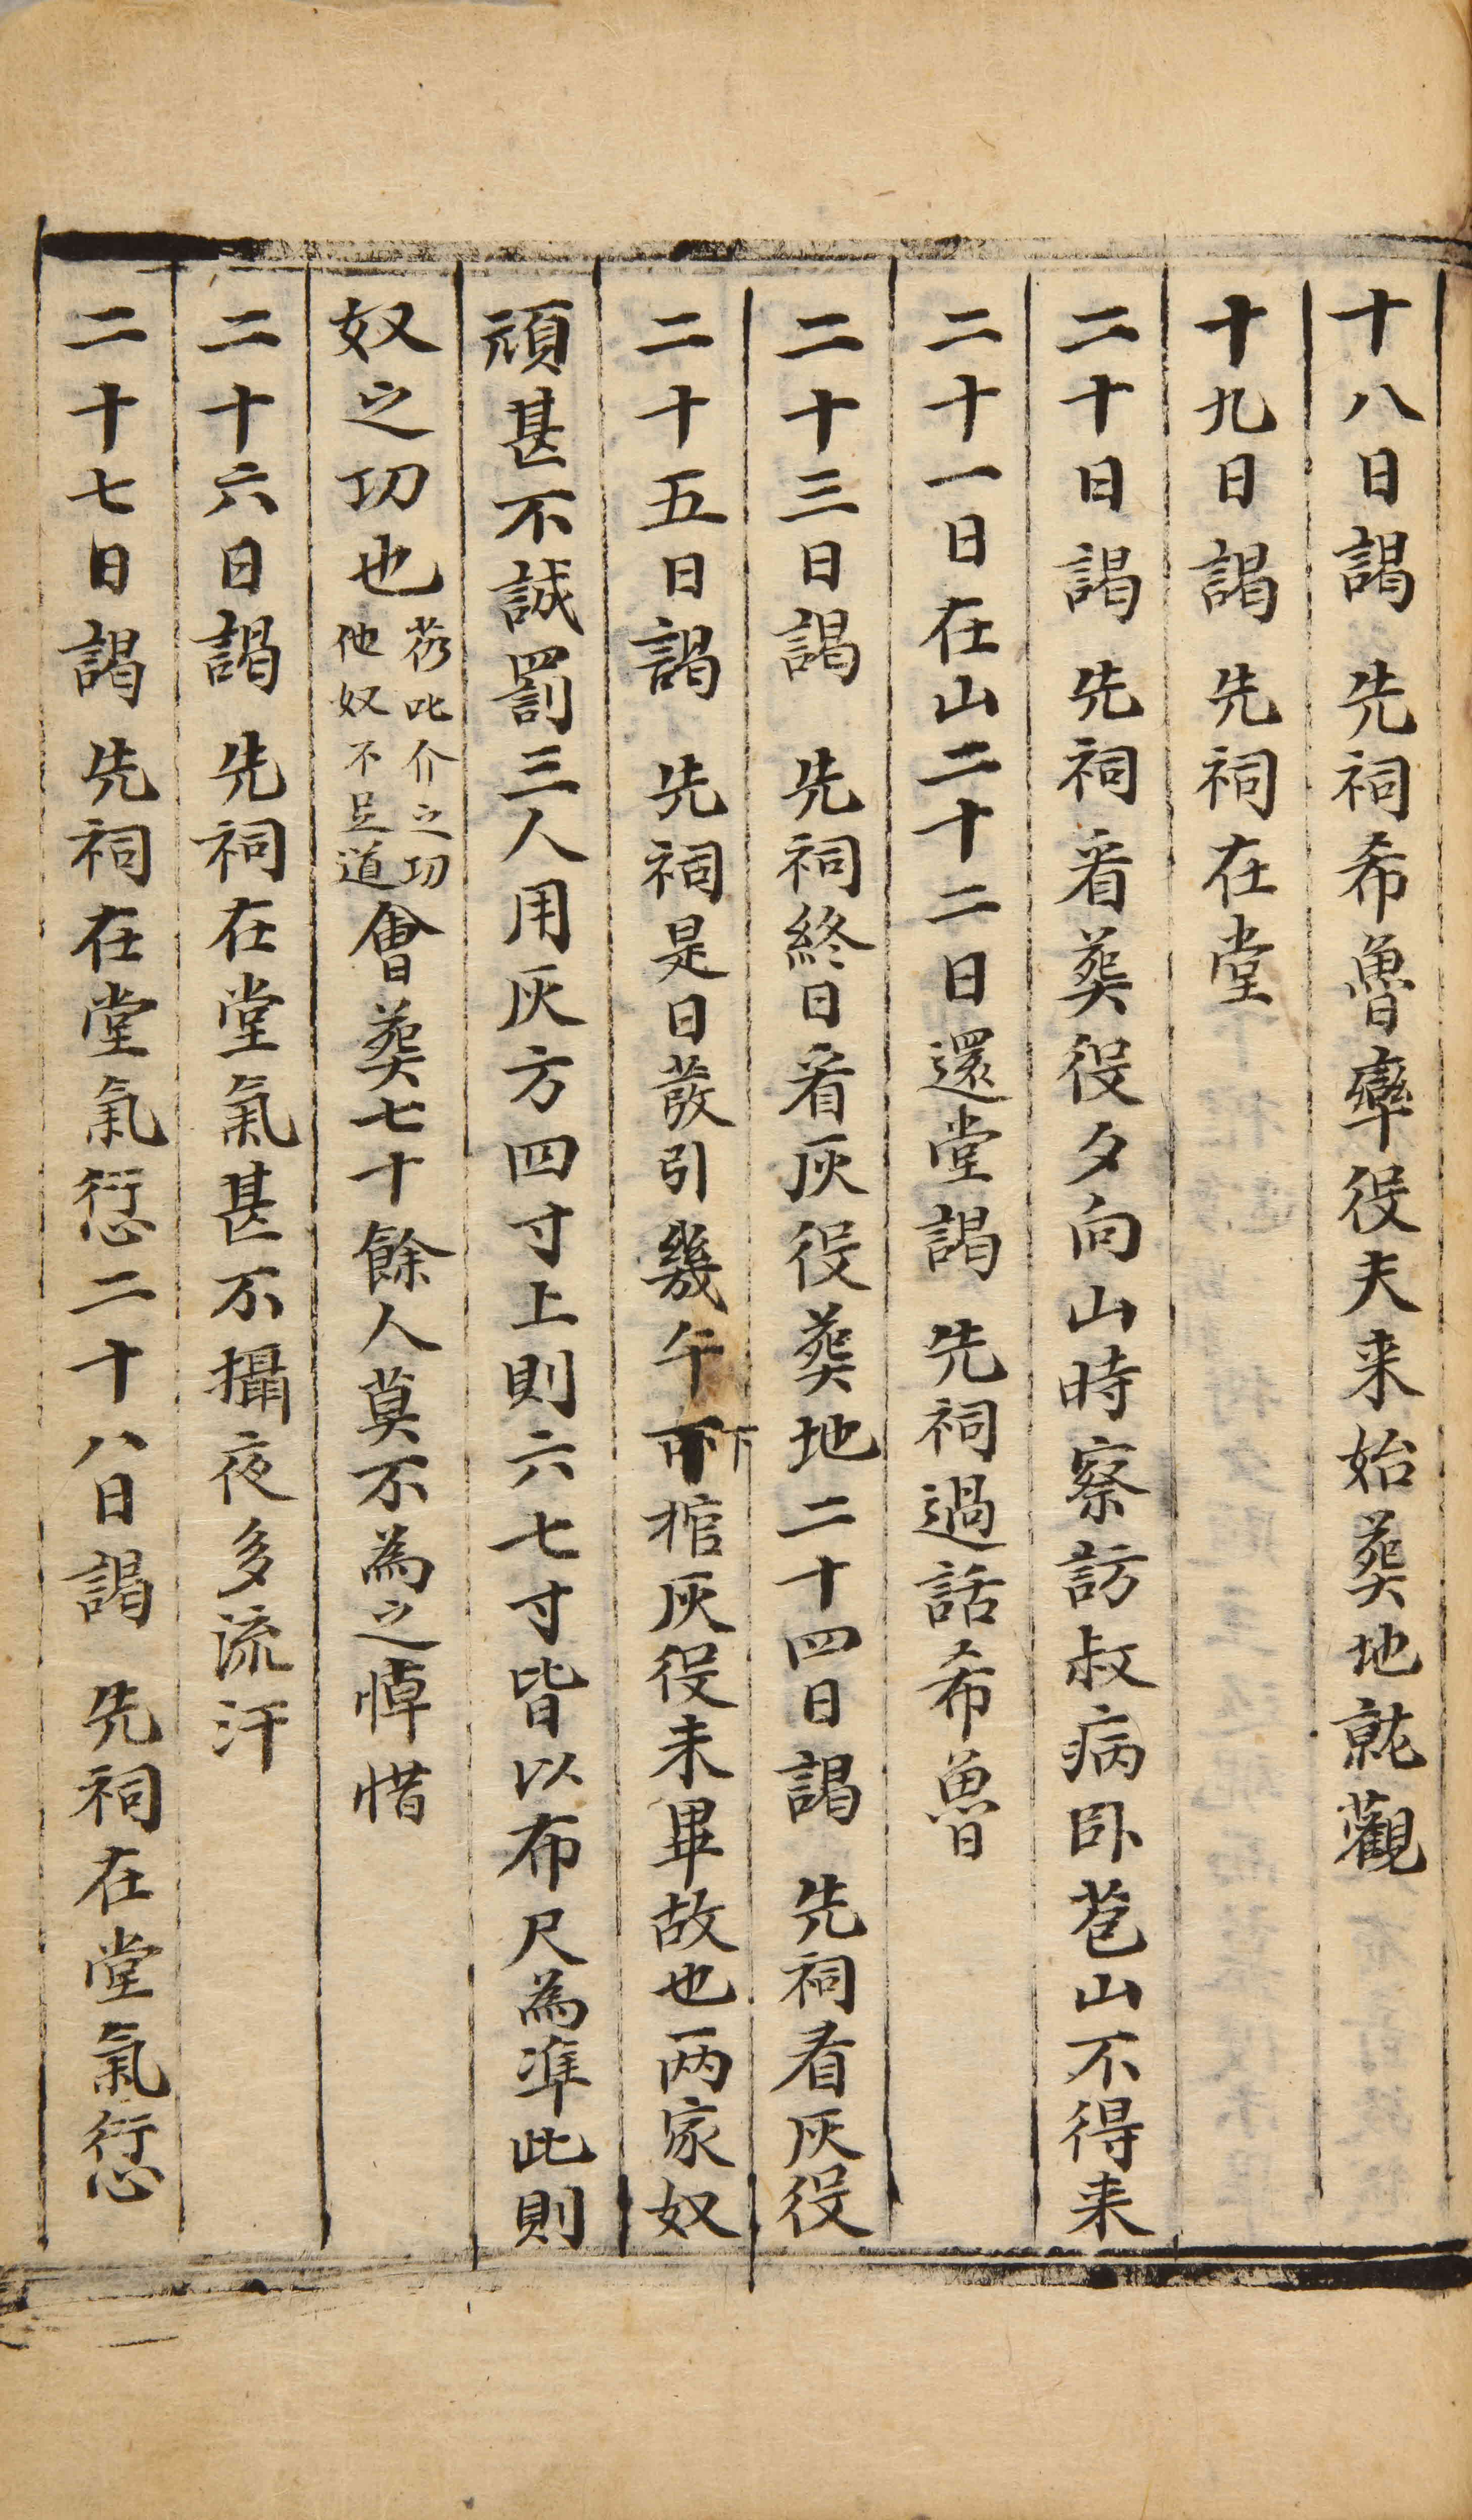 十八日謁 先祠希魯率役夫来始葬地就觀
十九日謁 先祠在堂
二十日謁 先祠看葬役夕向山時察訪叔病卧苞山不得来
二十一日在山二十二日還堂謁 先祠過話希魯
二十三日謁 先祠終日看灰役葬地二十四日謁 先祠看灰役
二十五日謁 先祠是日發引幾午下棺灰役未畢故也两家奴
頑甚不誠罰三人用灰方四寸上則六七寸皆以布尺為準此則
奴之功也莻叱介之功
他奴不足道會葬七十餘人莫不為之悼惜
二十六日謁 先祠在堂氣甚不攝夜多流汗
二十七日謁 先祠在堂氣愆二十八日謁 先祠在堂氣愆